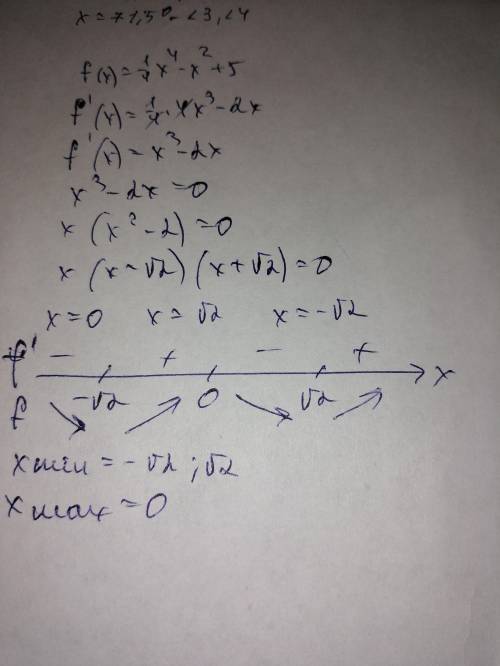 x = 71,5° - ∠3, ∠4
f(x) = 1/4 x⁴ - x² + 5
f'(x) = 1/4 · 4x³ - 2x
f'(x) = x³ - 2x
x³ - 2x = 0
x (x² - 2) = 0
x (x - √2) (x + √2) = 0
x = 0 x = √2 x = -√2
f' - + - +
-√2 0 √2 x
f ↘ ↗ ↘ ↗
xmin = -√2 ; √2
xmax = 0